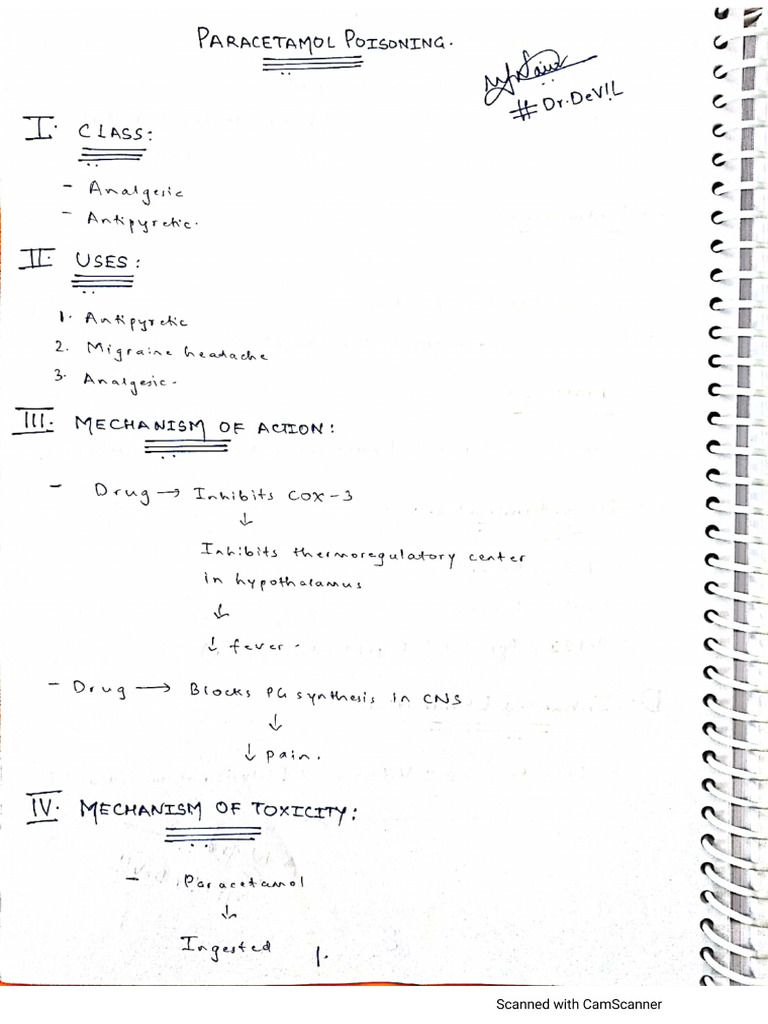 PARACETAMOL POISONING.
#Dr.DeV!L
I. CLASS:
- Analgesic
- Antipyretic.
II. USES:
1. Antipyretic
2. Migraine headache
3. Analgesic.
III. MECHANISM OF ACTION:
- Drug → Inhibits COX-3
↓
Inhibits thermoregulatory center
in hypothalamus
↓
↓ fever.
- Drug → Blocks PG synthesis in CNS
↓
↓ pain.
IV. MECHANISM OF TOXICITY:
- Paracetamol
↓
Ingested 1.
Scanned with CamScanner